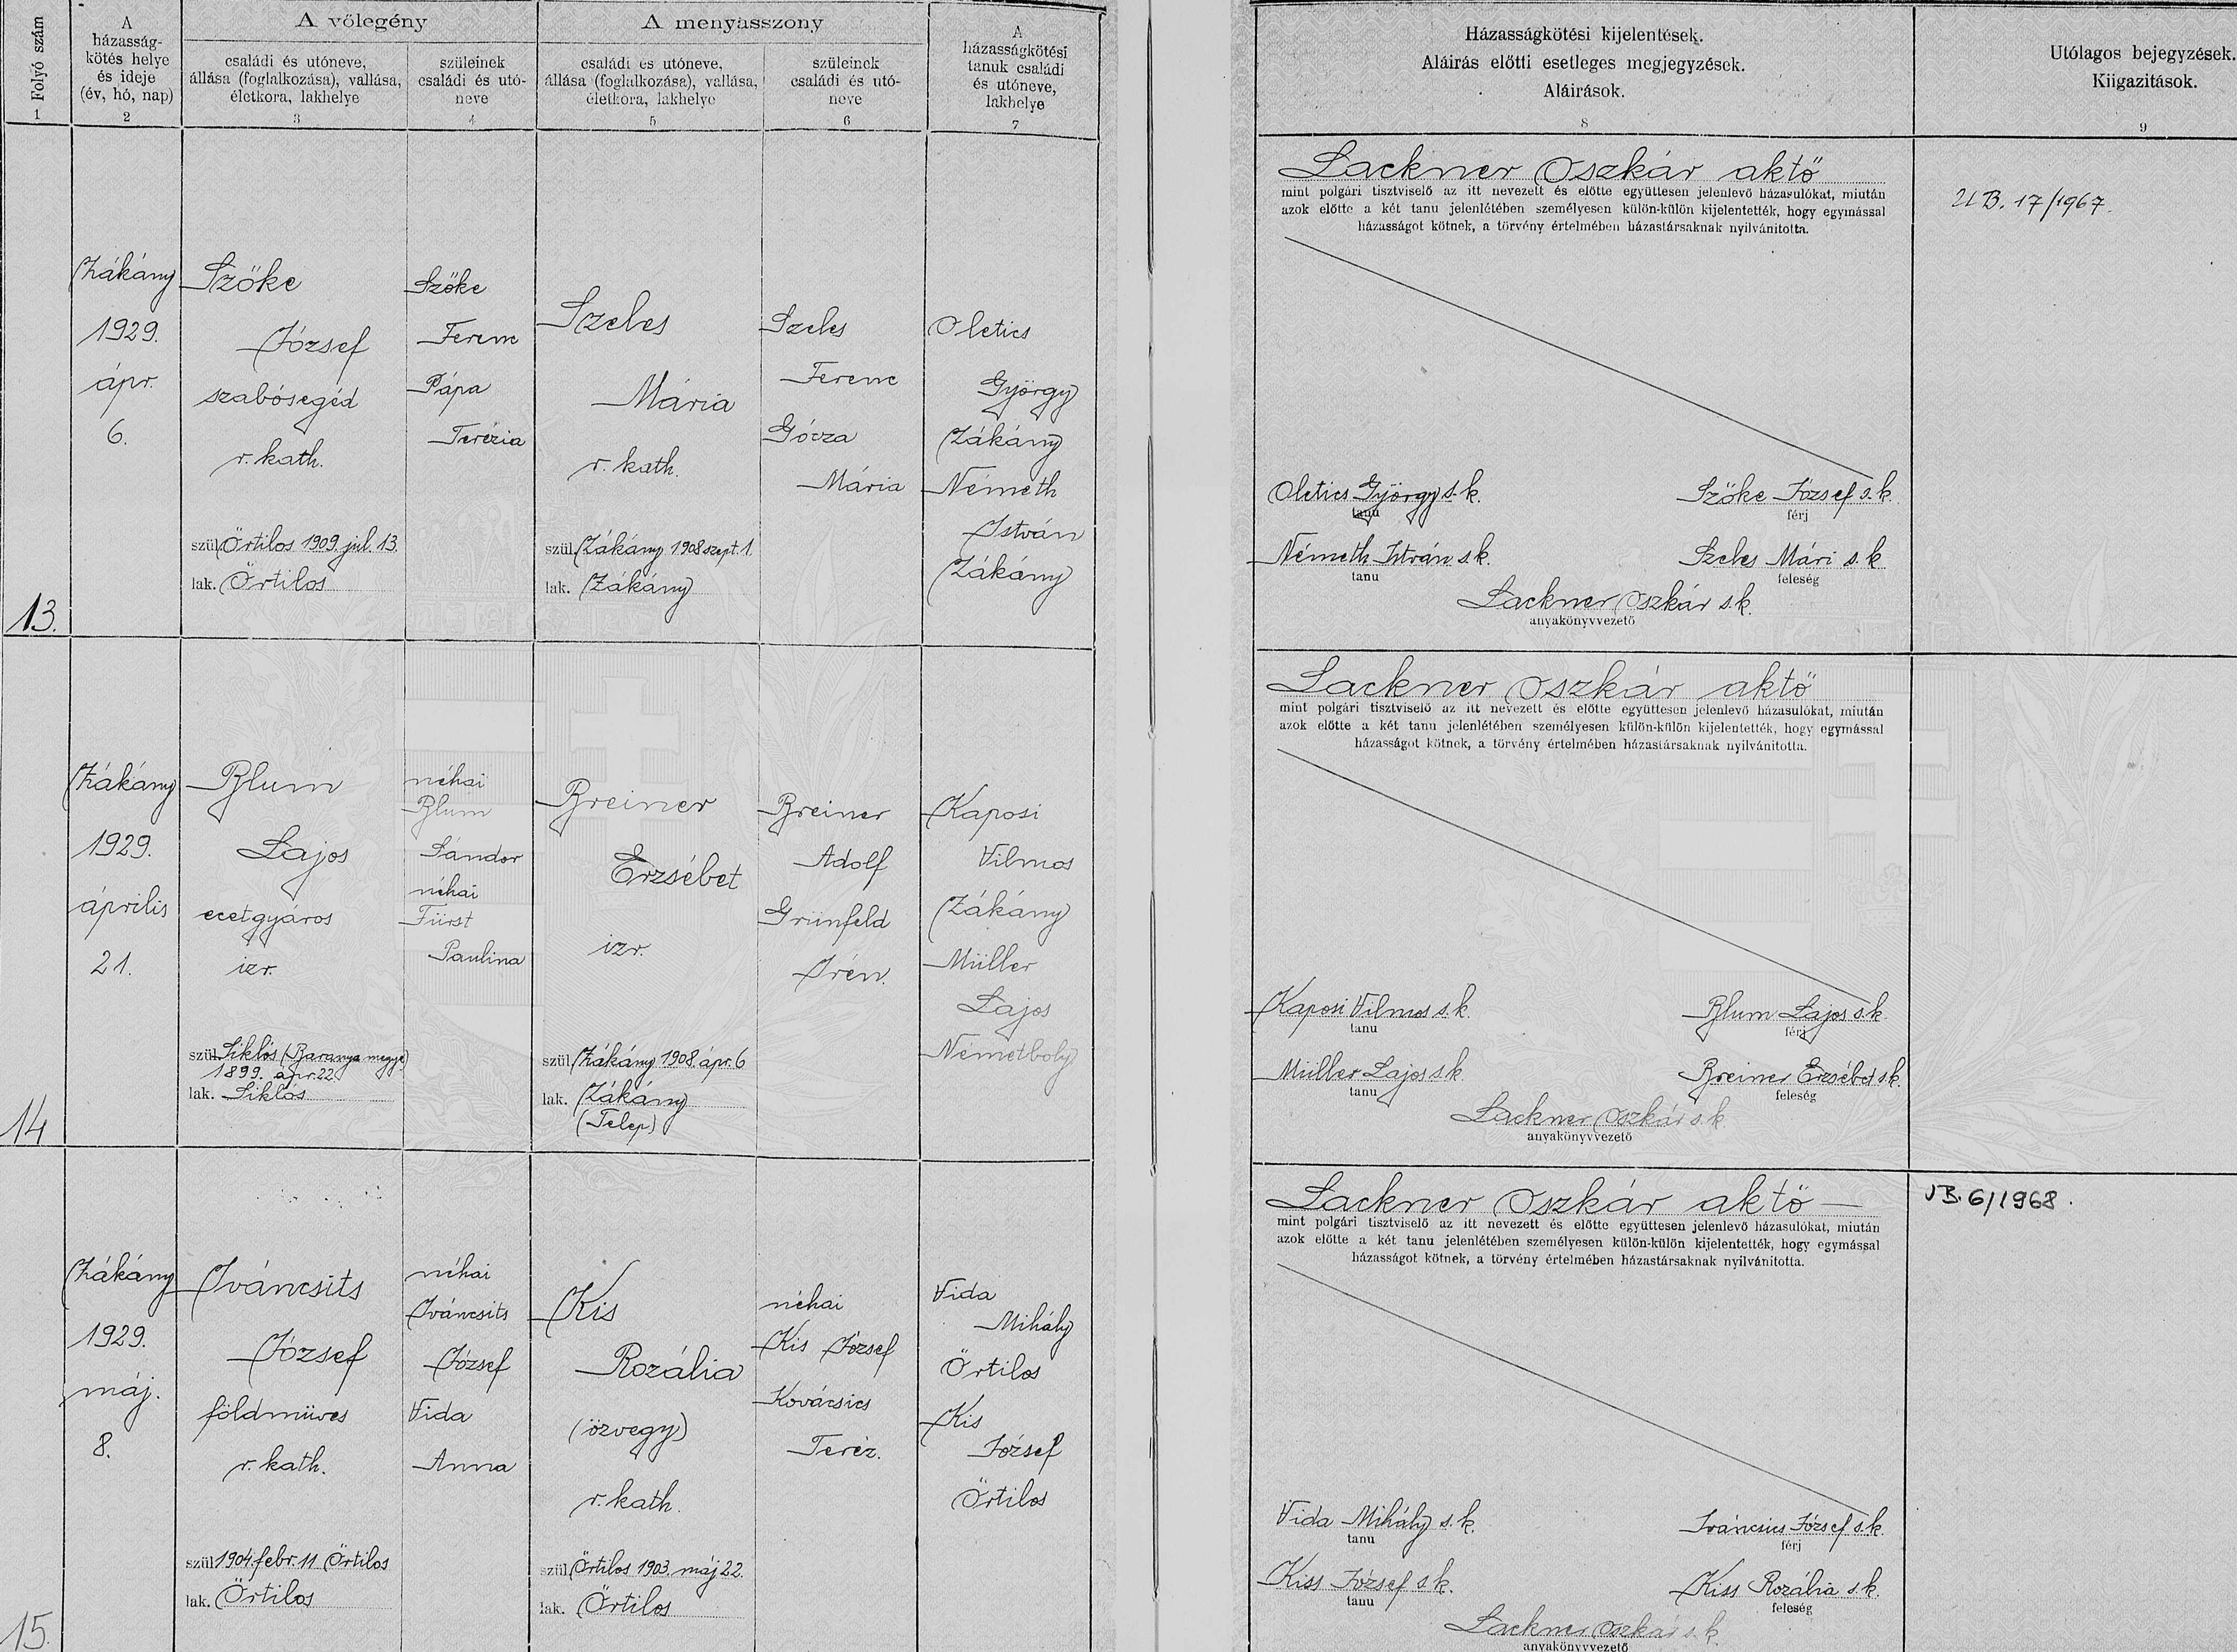 Folyó szám
1
A
házasság-
kötés helye
és ideje
(év, hó, nap)
2
A vőlegény
családi és utóneve,
állása (foglalkozása), vallása,
életkora, lakhelye
3
szüleinek
családi és utó-
neve
4
A menyasszony
családi és utóneve,
állása (foglalkozása), vallása,
életkora, lakhelye
5
szüleinek
családi és utó-
neve
6
A
házasságkötési
tanuk családi
és utóneve,
lakhelye
7
Házasságkötési kijelentések.
Aláirás előtti esetleges megjegyzések.
Aláirások.
8
Utólagos bejegyzések.
Kiigazitások.
9
13.
Zákány
1929.
ápr.
6.
Szőke
József
szabósegéd
r. kath.
szül. Őrtilos 1909. júl. 13.
lak. Őrtilos
Szőke
Ferenc
Pápa
Terézia
Szeles
Mária
r. kath.
szül. Zákány 1908 szept. 1.
lak. Zákány
Szeles
Ferenc
Gócza
Mária
Oletics
György
Zákány
Németh
István
Zákány
Lackner Oszkár aktő
mint polgári tisztviselő az itt nevezett és előtte együttesen jelenlevő házasulókat, miután
azok előtte a két tanu jelenlétében személyesen külön-külön kijelentették, hogy egymással
házasságot kötnek, a törvény értelmében házastársaknak nyilvánitotta.
Oletics György s. k.
tanu
Szőke József s. k.
férj
Németh István s. k.
tanu
Szeles Mári s. k.
feleség
Lackner Oszkár s. k.
anyakönyvvezető
UB. 17/1967.
14
Zákány
1929.
április
21.
Blum
Lajos
ecetgyáros
izr.
szül. Siklós (Baranya megye)
1899. ápr. 22
lak. Siklós
néhai
Blum
Sándor
néhai
Fürst
Paulina
Breiner
Erzsébet
izr.
szül. Zákány 1908. ápr. 6
lak. Zákány
(Telep)
Breiner
Adolf
Grünfeld
Irén.
Kaposi
Vilmos
Zákány
Müller
Lajos
Németboly
Lackner Oszkár aktő
mint polgári tisztviselő az itt nevezett és előtte együttesen jelenlevő házasulókat, miután
azok előtte a két tanu jelenlétében személyesen külön-külön kijelentették, hogy egymással
házasságot kötnek, a törvény értelmében házastársaknak nyilvánitotta.
Kaposi Vilmos s. k.
tanu
Blum Lajos s. k.
férj
Müller Lajos s. k.
tanu
Breiner Erzsébet s. k.
feleség
Lackner Oszkár s. k.
anyakönyvvezető
15.
Zákány
1929.
máj.
8.
Iváncsits
József
földmüves
r. kath.
szül. 1904. febr. 11 Őrtilos
lak. Őrtilos
néhai
Iváncsits
József
Vida
Anna
Kis
Rozália
(özvegy)
r. kath.
szül. Őrtilos 1903. máj 22.
lak. Őrtilos
néhai
Kis József
Kovácsics
Teréz.
Vida
Mihály
Őrtilos
Kis
József
Őrtilos
Lackner Oszkár aktő —
mint polgári tisztviselő az itt nevezett és előtte együttesen jelenlevő házasulókat, miután
azok előtte a két tanu jelenlétében személyesen külön-külön kijelentették, hogy egymással
házasságot kötnek, a törvény értelmében házastársaknak nyilvánitotta.
Vida Mihály s. k.
tanu
Iváncsics József s. k.
férj
Kiss József s. k.
tanu
Kiss Rozália s. k.
feleség
Lackner Oszkár s. k.
anyakönyvvezető
UB. 6/1968.